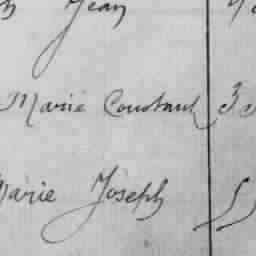 Jean
Marie Constant 3
Marie Joseph